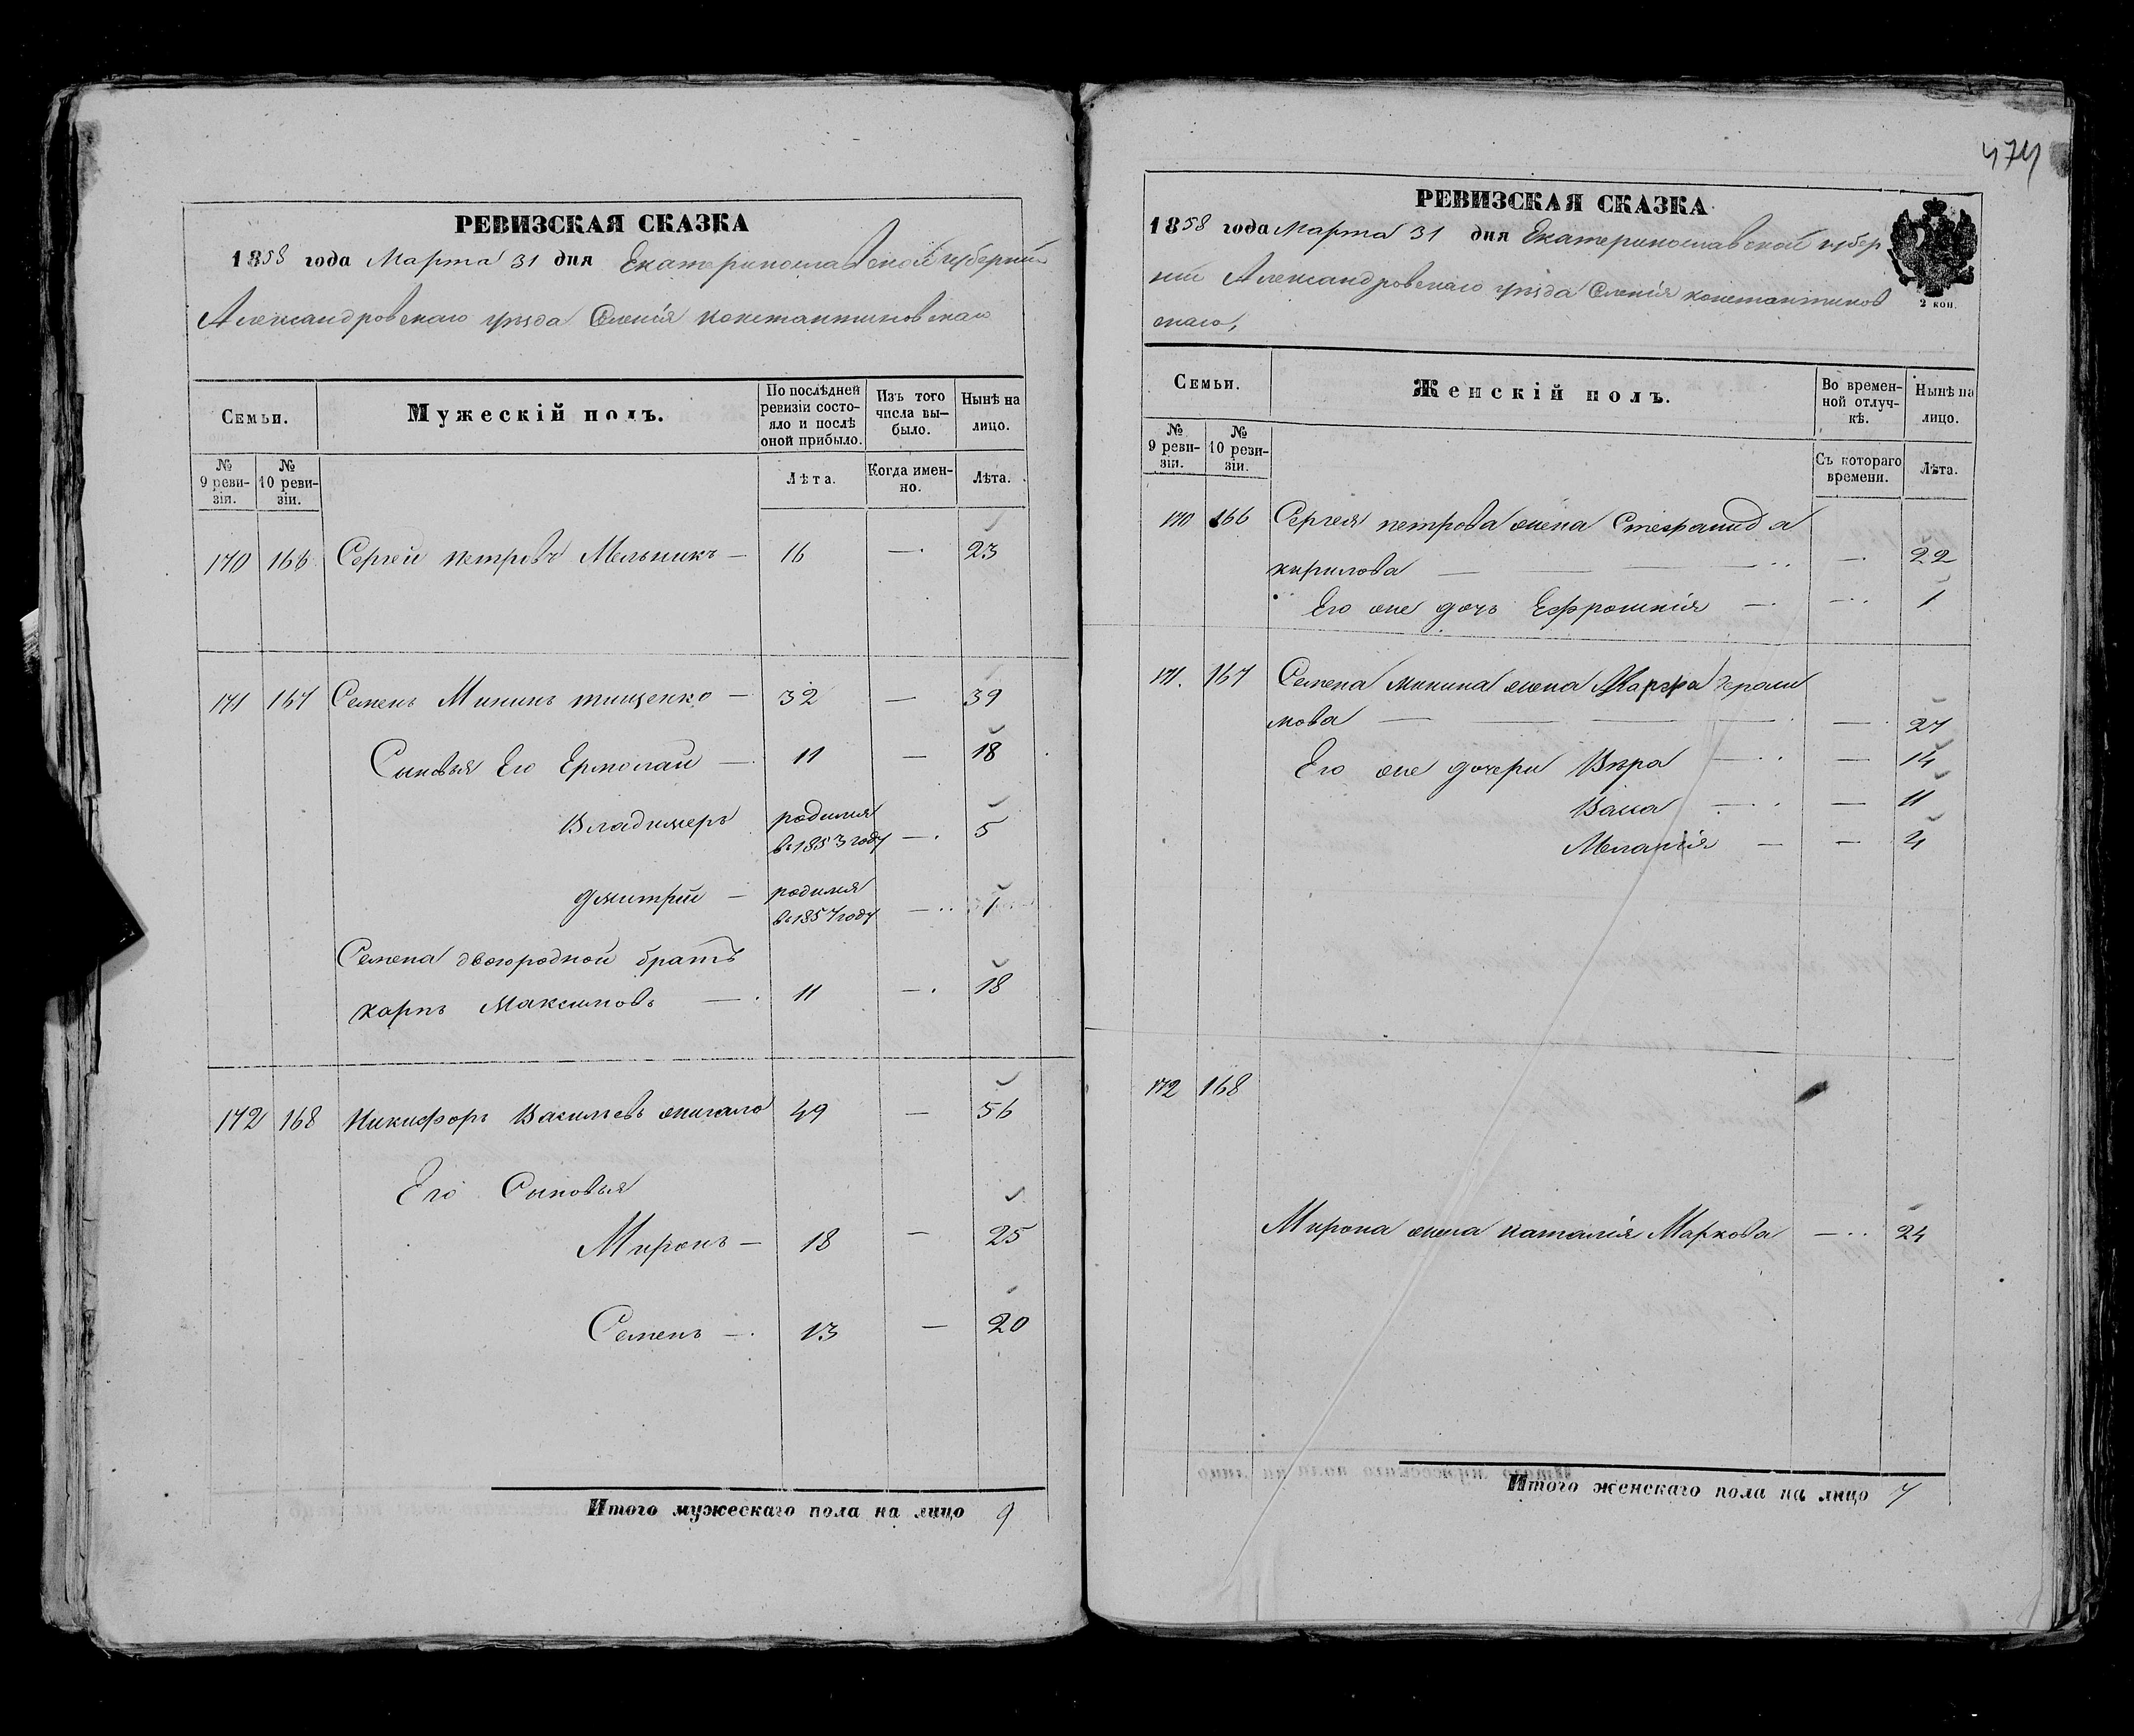 474
РЕВИЗСКАЯ СКАЗКА
1858 года Марта 31 дня Екатеринославской губернии
Александровскаго уезда Селенія константиновскаго
Семьи.
Мужескій полъ.
По послѣдней ревизіи состо-
яло и послѣ оной прибыло.
Изъ того числа вы-
было.
Нынѣ на лицо.
№ 9 реви-
зіи.
№ 10 реви-
зіи.
Лѣта.
Когда имен-
но.
Лѣта.
170 166 Сергей петровъ Мельникъ — 16 — 23
171 167 Семенъ Мининъ тищенко — 32 — 39
Сыновья Его Ермолай — 11 — 18
Владимеръ родился
в 1853 году — 5
дмитрий — родился
в 1857 году — 1
Семена двоюродной братъ
карпъ Максимовъ — 11 — 18
172 168 Никифоръ Васильевъ 49 — 56
Его Сыновья
Миронъ — 18 — 25
Семенъ — 13 — 20
Итого мужескаго пола на лицо 9
РЕВИЗСКАЯ СКАЗКА
1858 года Марта 31 дня Екатеринославской губер
нии Александровскаго уезда Селенія константинов
скаго,
2 коп.
Семьи.
Женскій полъ.
Во времен-
ной отлуч-
кѣ.
Нынѣ на
лицо.
№ 9 реви-
зіи.
№ 10 реви-
зіи.
Съ котораго
времени.
Лѣта.
170 166 Сергея петрова жена Стефанида
кирилова — 22
Его же дочь Ефросинія — 1
171. 167 Семена минина жена Марфа Гераси
мова — 27
Его же дочери Вера — 14
Васса — 11
Меланія — 4
172 168
Мирона жена наталія Маркова — 24
Итого женскаго пола на лицо 7